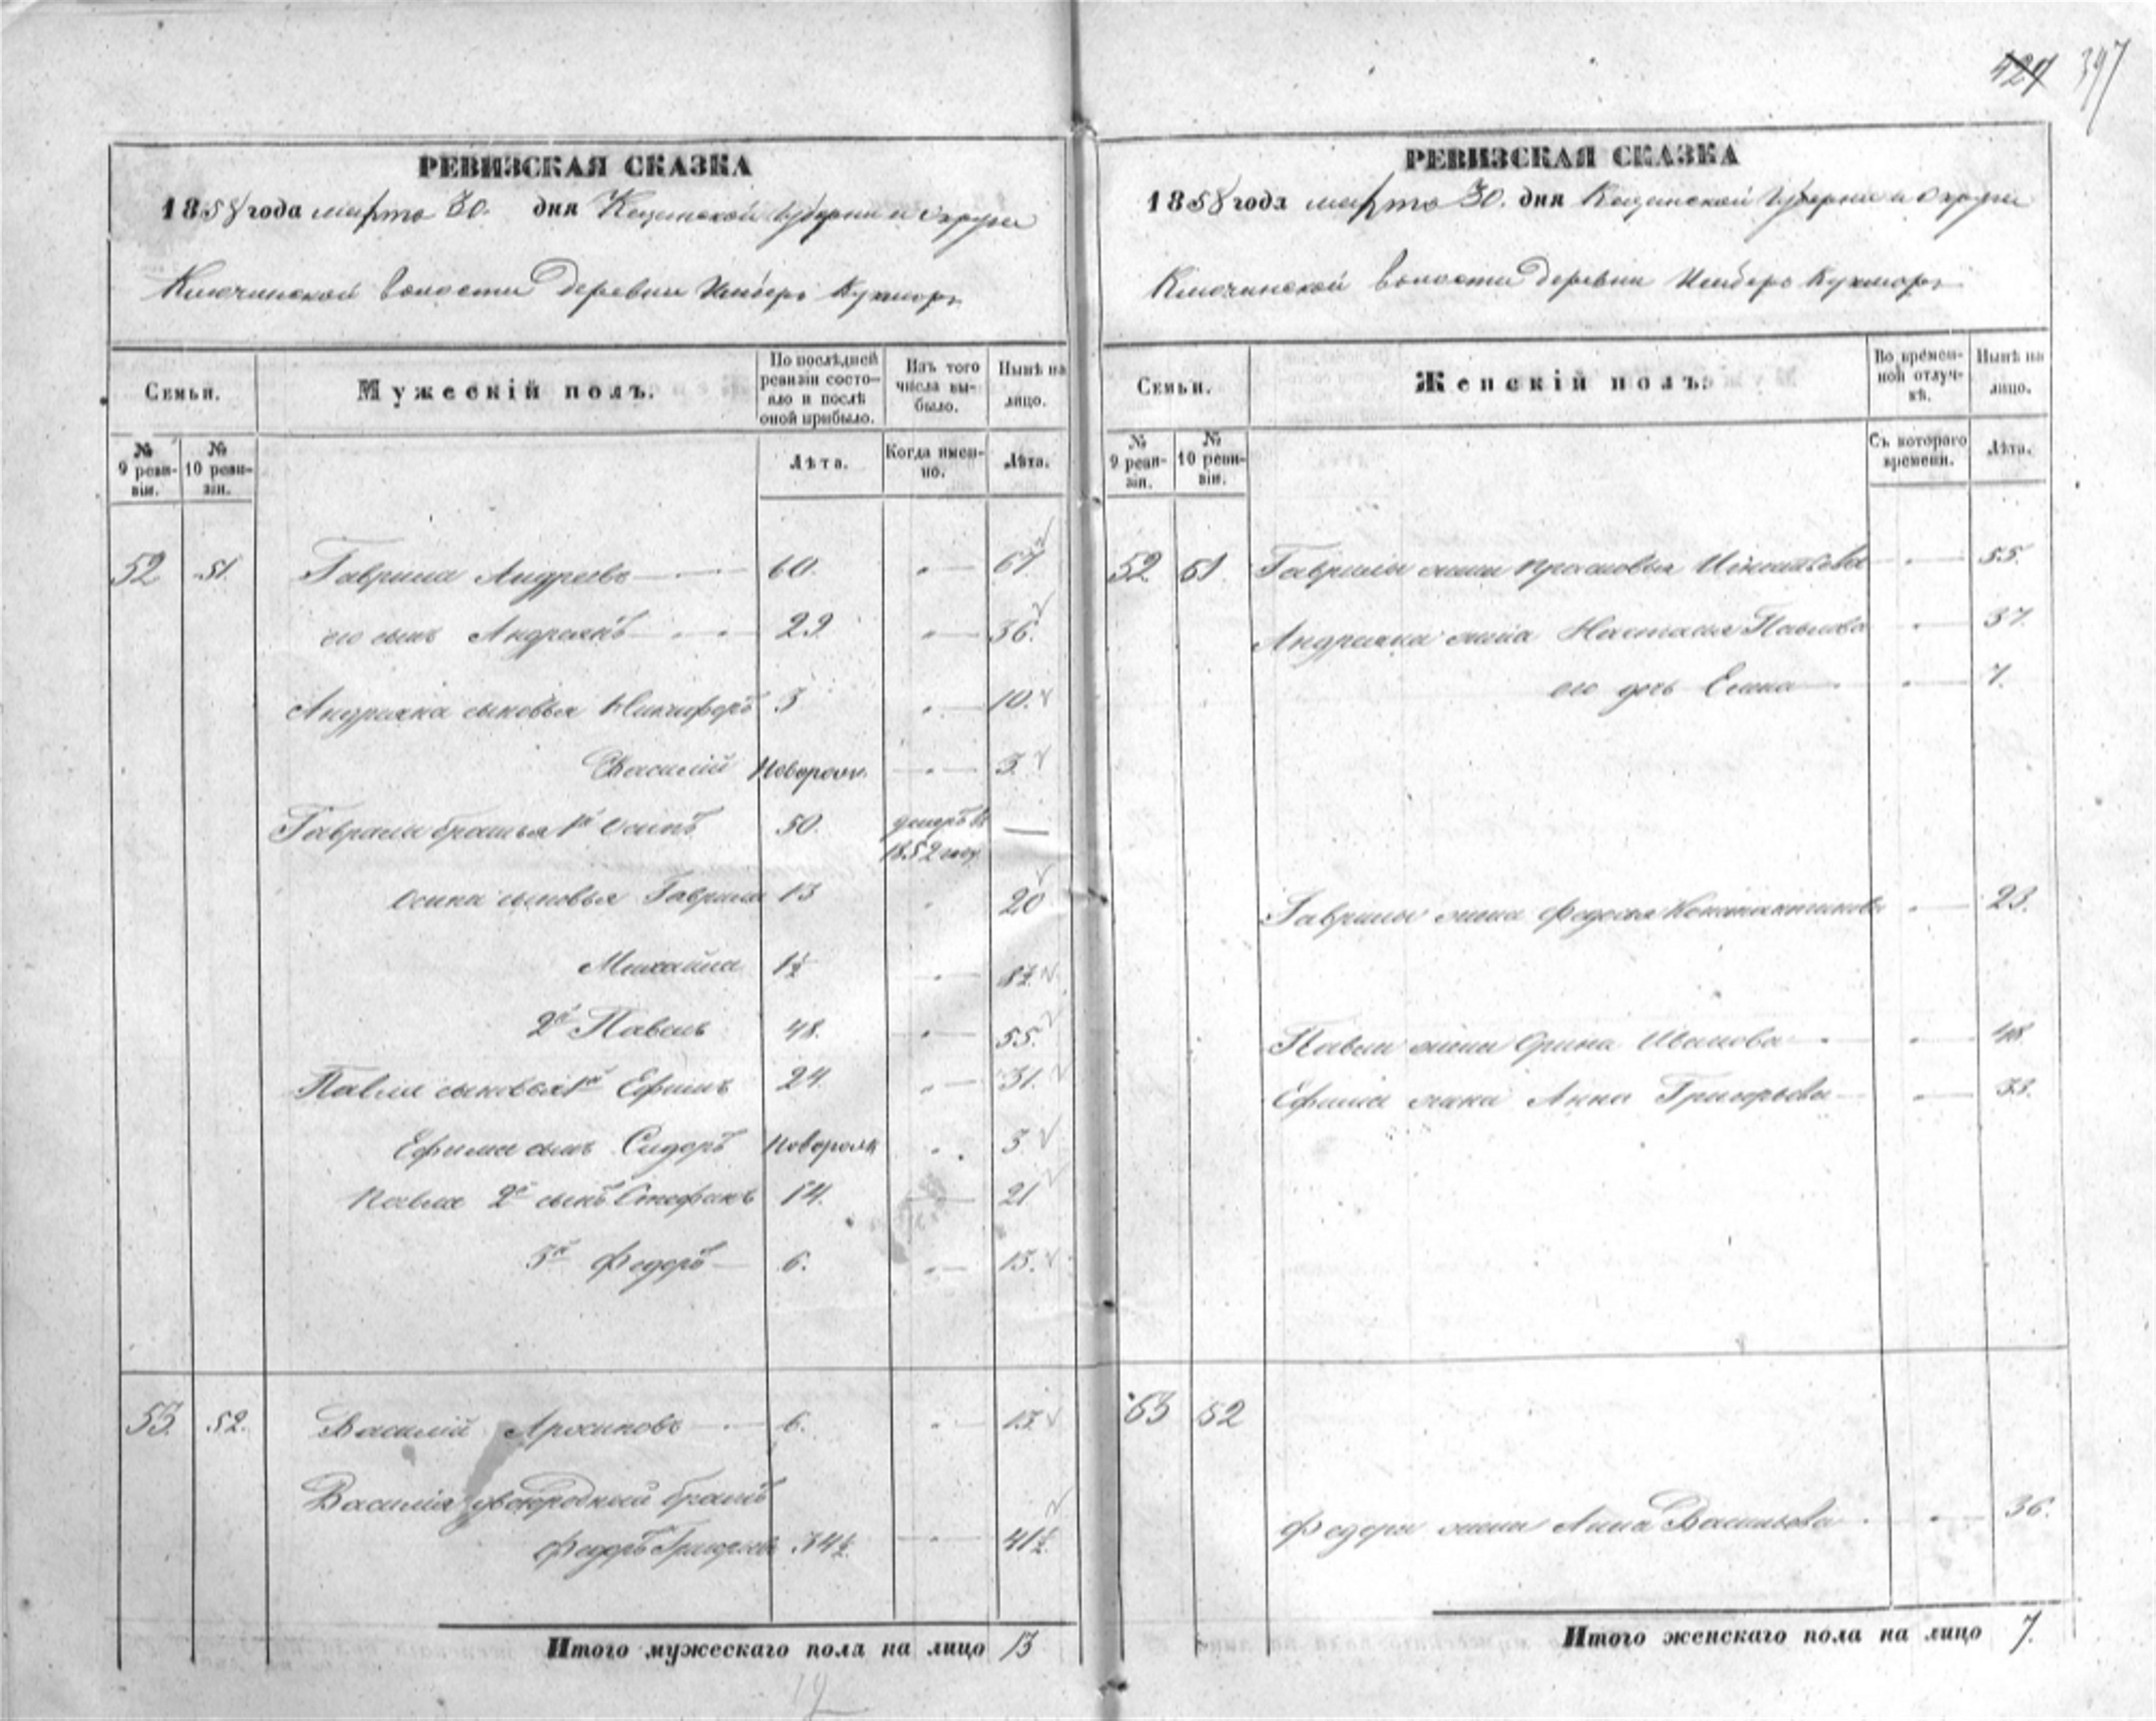 424 397
РЕВИЗСКАЯ СКАЗКА
1858 года марта 30. дня Казанской Губернии и Округи
Ключинской волости Деревни Кукмаръ
Семьи.
Мужескій полъ.
По послѣдней ревизіи состояло и послѣ оной прибыло.
Изъ того числа выбыло.
Нынѣ на лицо.
№ 9 ревизіи.
№ 10 ревизіи.
Лѣта.
Когда именно.
Лѣта.
52 51. Гаврила Андреевъ 60. 67
его сынъ Андреянъ 29. 36.
Андреяна сыновья Никифоръ 3 10.
Василий Новорож. 3.
Гаврилы братья 1й Осипъ 50. умеръ въ 1852 году
Осипа сыновья Гаврила 13 20
Михайла 1½ 8½
2й Павелъ 48. 55.
Павла сыновья 1й Ефимъ 24. 31.
Ефима сынъ Сидоръ Новорож 3
Павла 2й сынъ Стефанъ 14. 21
3й Федоръ 6. 13.
53. 52. Василий Архиповъ 6. 13
Василія двоюродный братъ
Федоръ Григорьевъ 34½ 41½
Итого мужескаго пола на лицо 13
РЕВИЗСКАЯ СКАЗКА
1858 года марта 30. дня Казанской Губернии и Округи
Ключинской волости Деревни Кукмаръ
Семьи.
Женскій полъ.
Во временной отлучкѣ.
Нынѣ на лицо.
№ 9 ревизіи.
№ 10 ревизіи.
Съ котораго времени.
Лѣта.
52. 51 Гаврилы жена Прасковья Игнатьева 55.
Андреяна жена Настасья Павлова 37.
его дочь Елена 7.
Гаврилы жена Федосья Константинова 23.
Павла жена Орина Иванова 48
Ефима жена Анна Григорьева 33.
53 52
Федора жена Анна Васильева 36.
Итого женскаго пола на лицо 7.